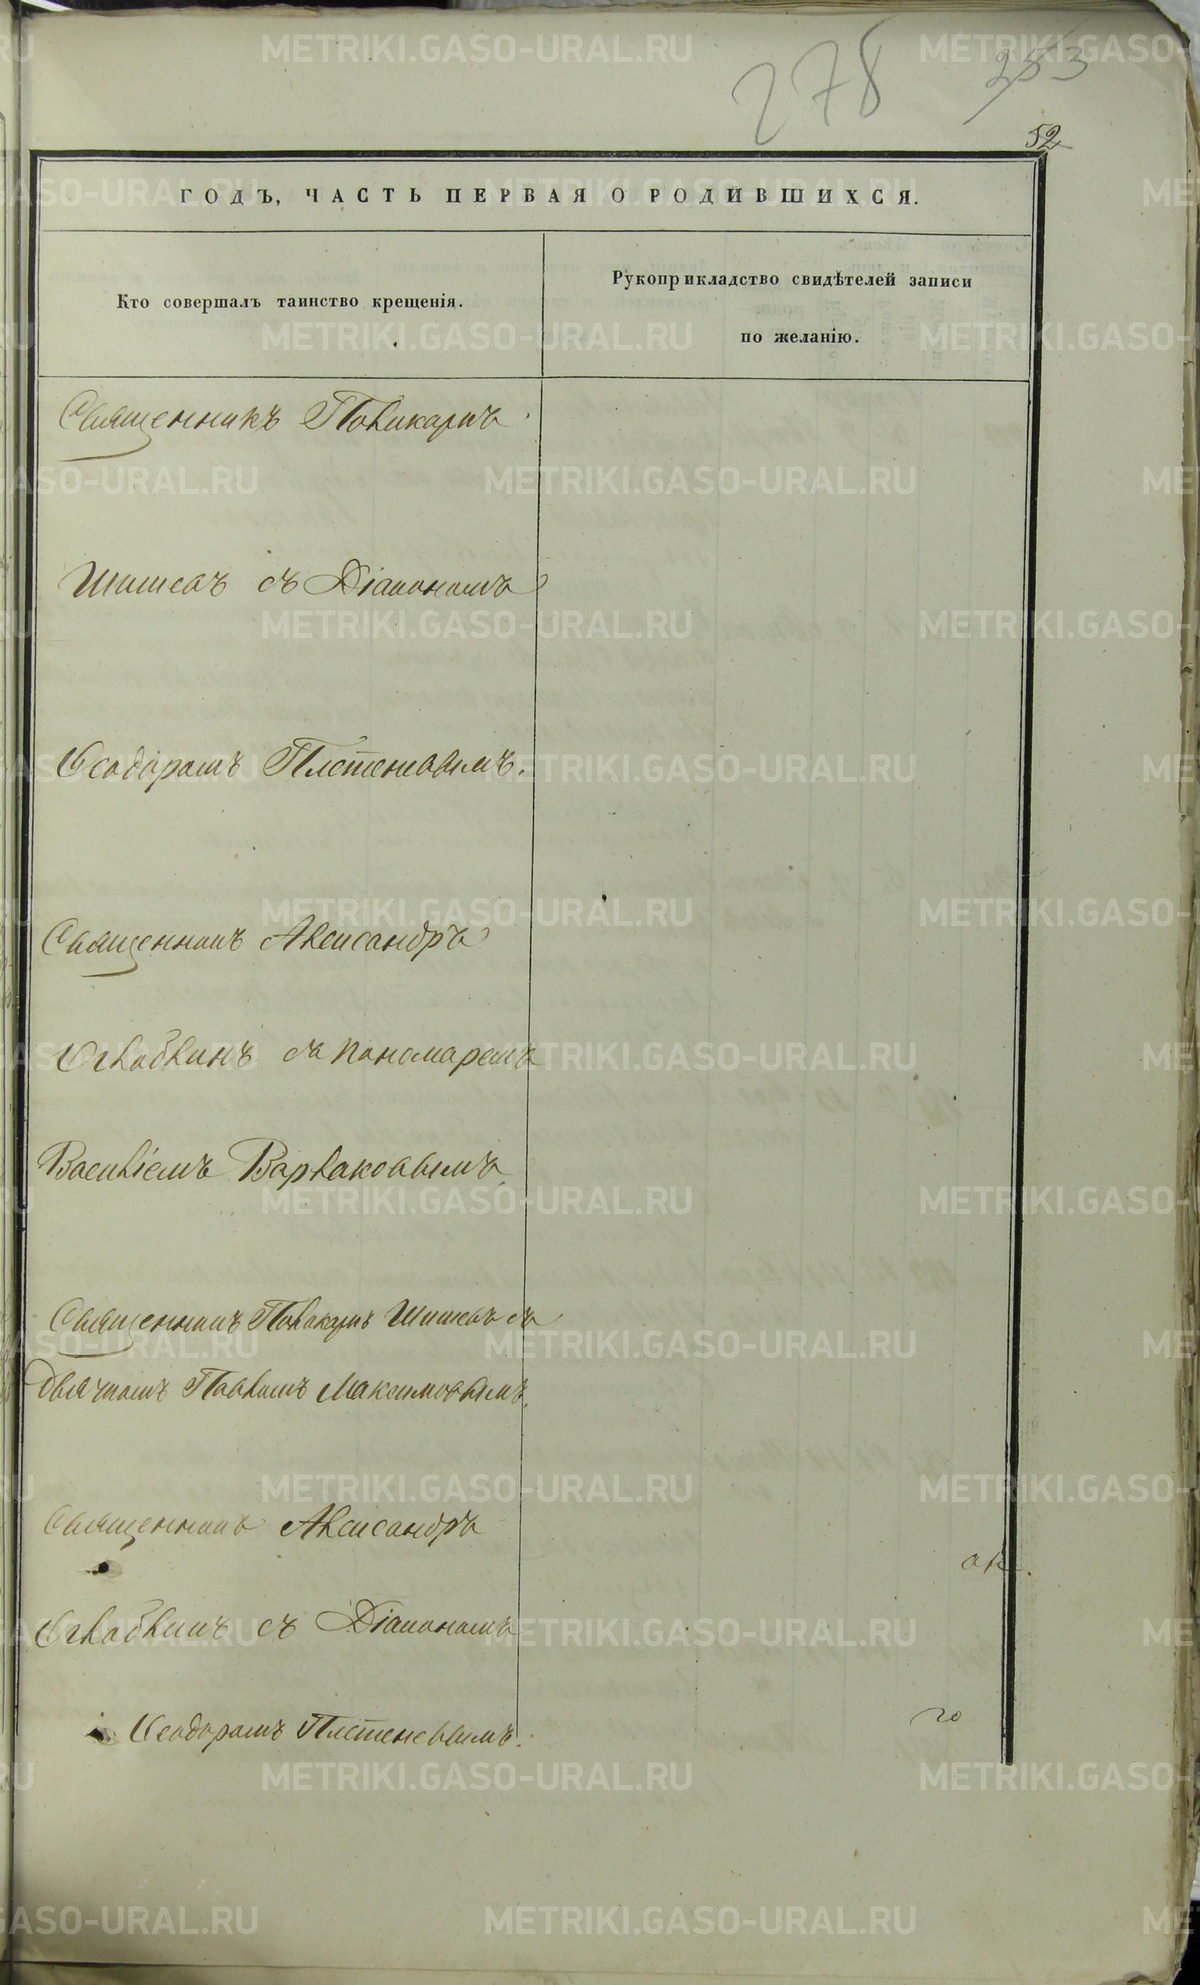 278
253
52
ГОДЪ, ЧАСТЬ ПЕРВАЯ О РОДИВШИХСЯ.
Кто совершалъ таинство крещенія.
Рукоприкладство свидѣтелей записи
по желанію.
Священникъ Поликарпъ
Шишевъ съ Діакономъ
Ѳеодоромъ Плетеневымъ.
Священникъ Александръ
съ пономаремъ
Василіемъ Варлаковымъ
Священникъ Поликарпъ Шишевъ съ
дьячкомъ Павломъ Максимовымъ.
Священникъ Александръ
съ Діакономъ
Ѳеодоромъ Плетеневымъ.
го
METRIKI.GASO-URAL.RU